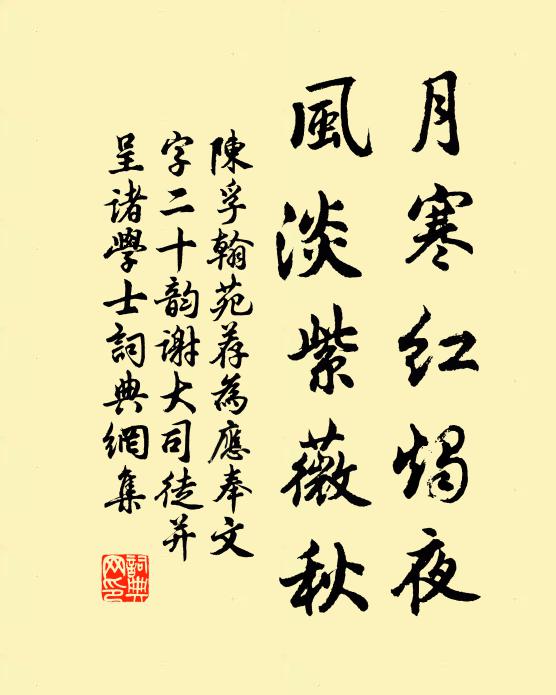 月寒红烛夜
風淡紫薇秋
陳孚翰苑荐為應奉文
字二十韵谢大司徒并
呈诸學士詞典網集
詞典
网印